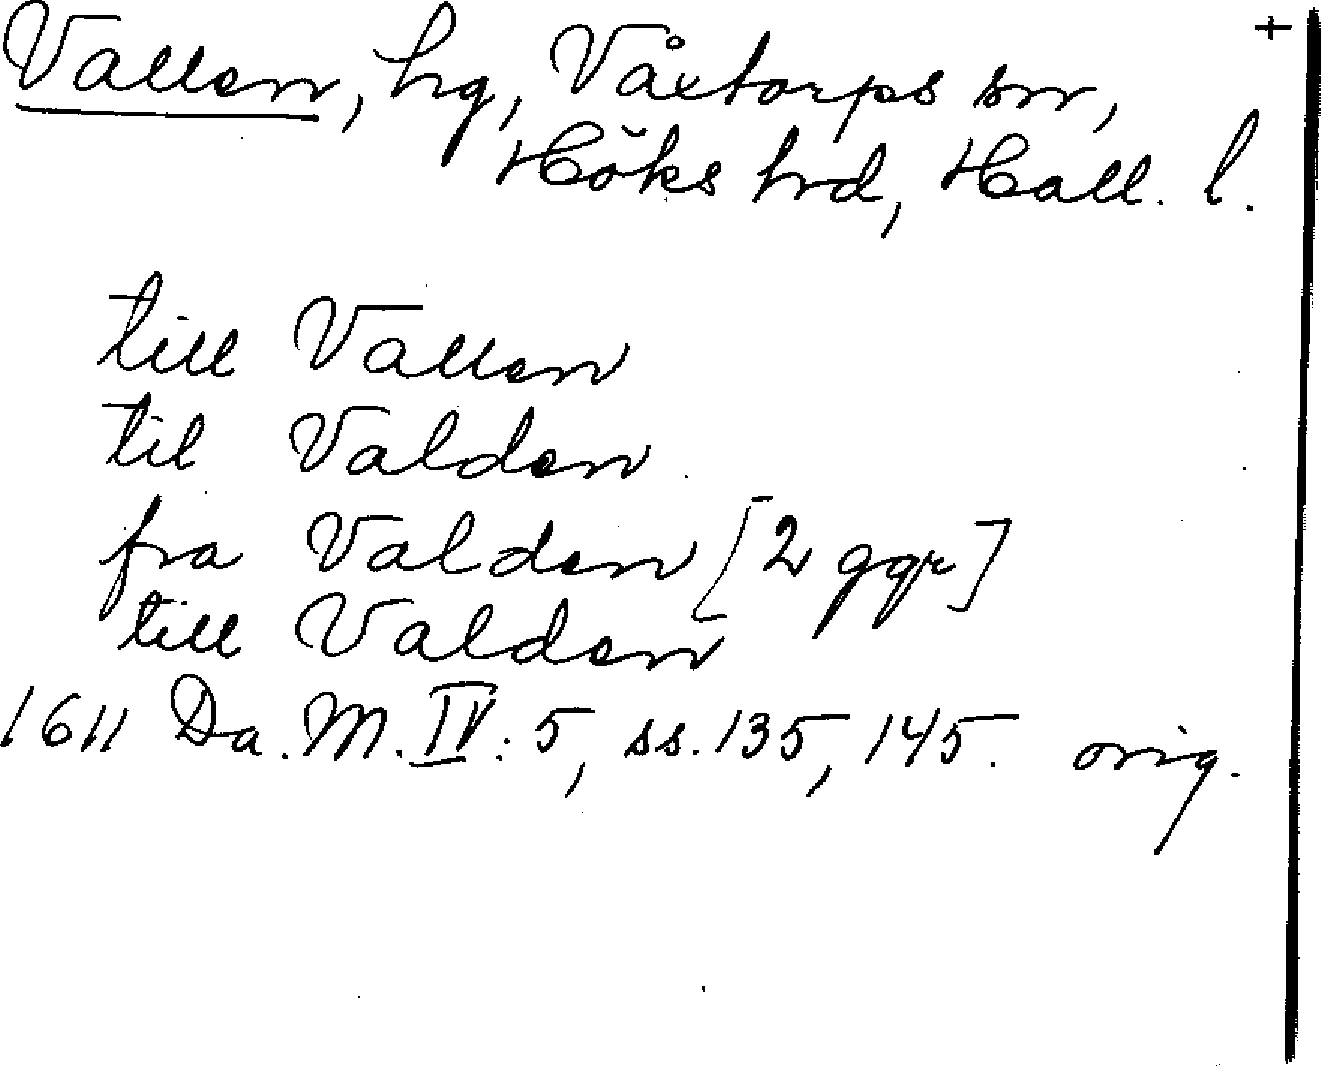 Vallen, hg, Våxtorps sn, +
Höks hrd, Hall. l.
till Vallen
til Valden
fra Valden [2 ggr]
till Valden
1611 Da. M. IV: 5, ss. 135, 145. orig.